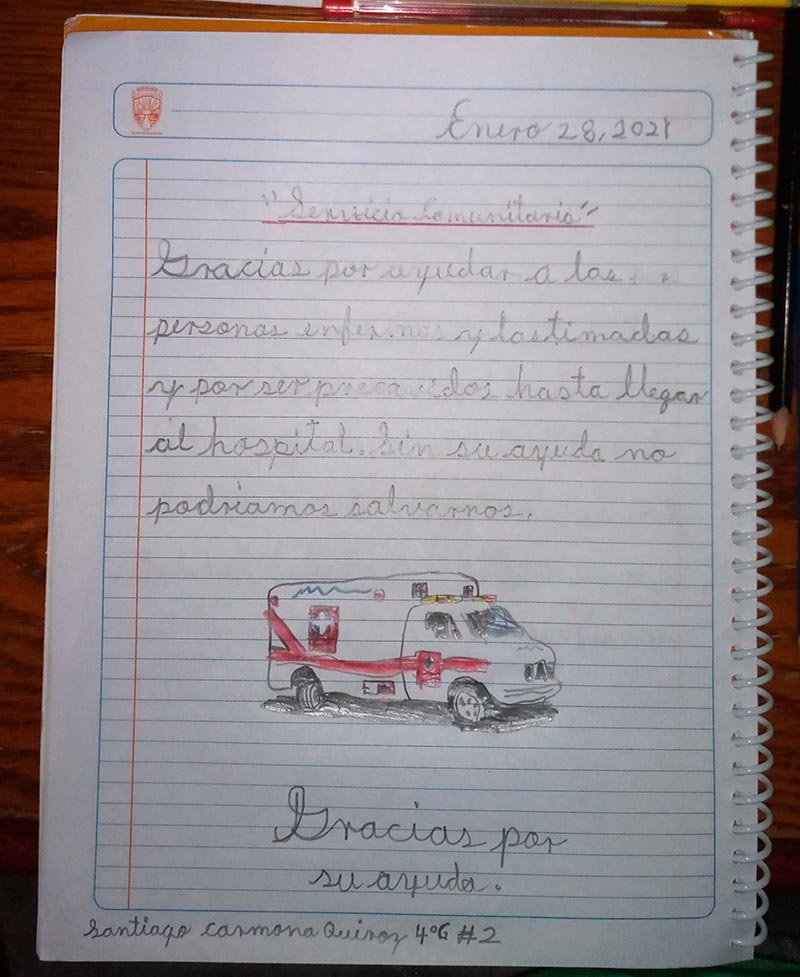 Enero 28, 2021
"Servicio Comunitario"
Gracias por ayudar a las
personas enfermas y lastimadas
y por ser precavidos hasta llegar
al hospital. Sin su ayuda no
podriamos salvarnos.
Gracias por
su ayuda.
Santiago Carmona Quiroz 4°G #2